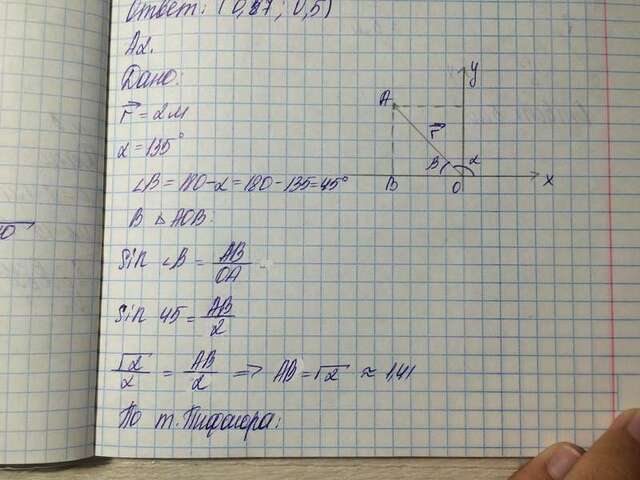 Ответ: (0,87; 0,5)
№2.
Дано:
r = 2 м
α = 135°
∠β = 180 - α = 180 - 135 = 45°
В Δ AOB:
Sin ∠β = AB/OA
Sin 45 = AB/2
√2/2 = AB/2 => AB = √2 ≈ 1,41
По т. Пифагора:
A
y
r
B
β
O
α
x